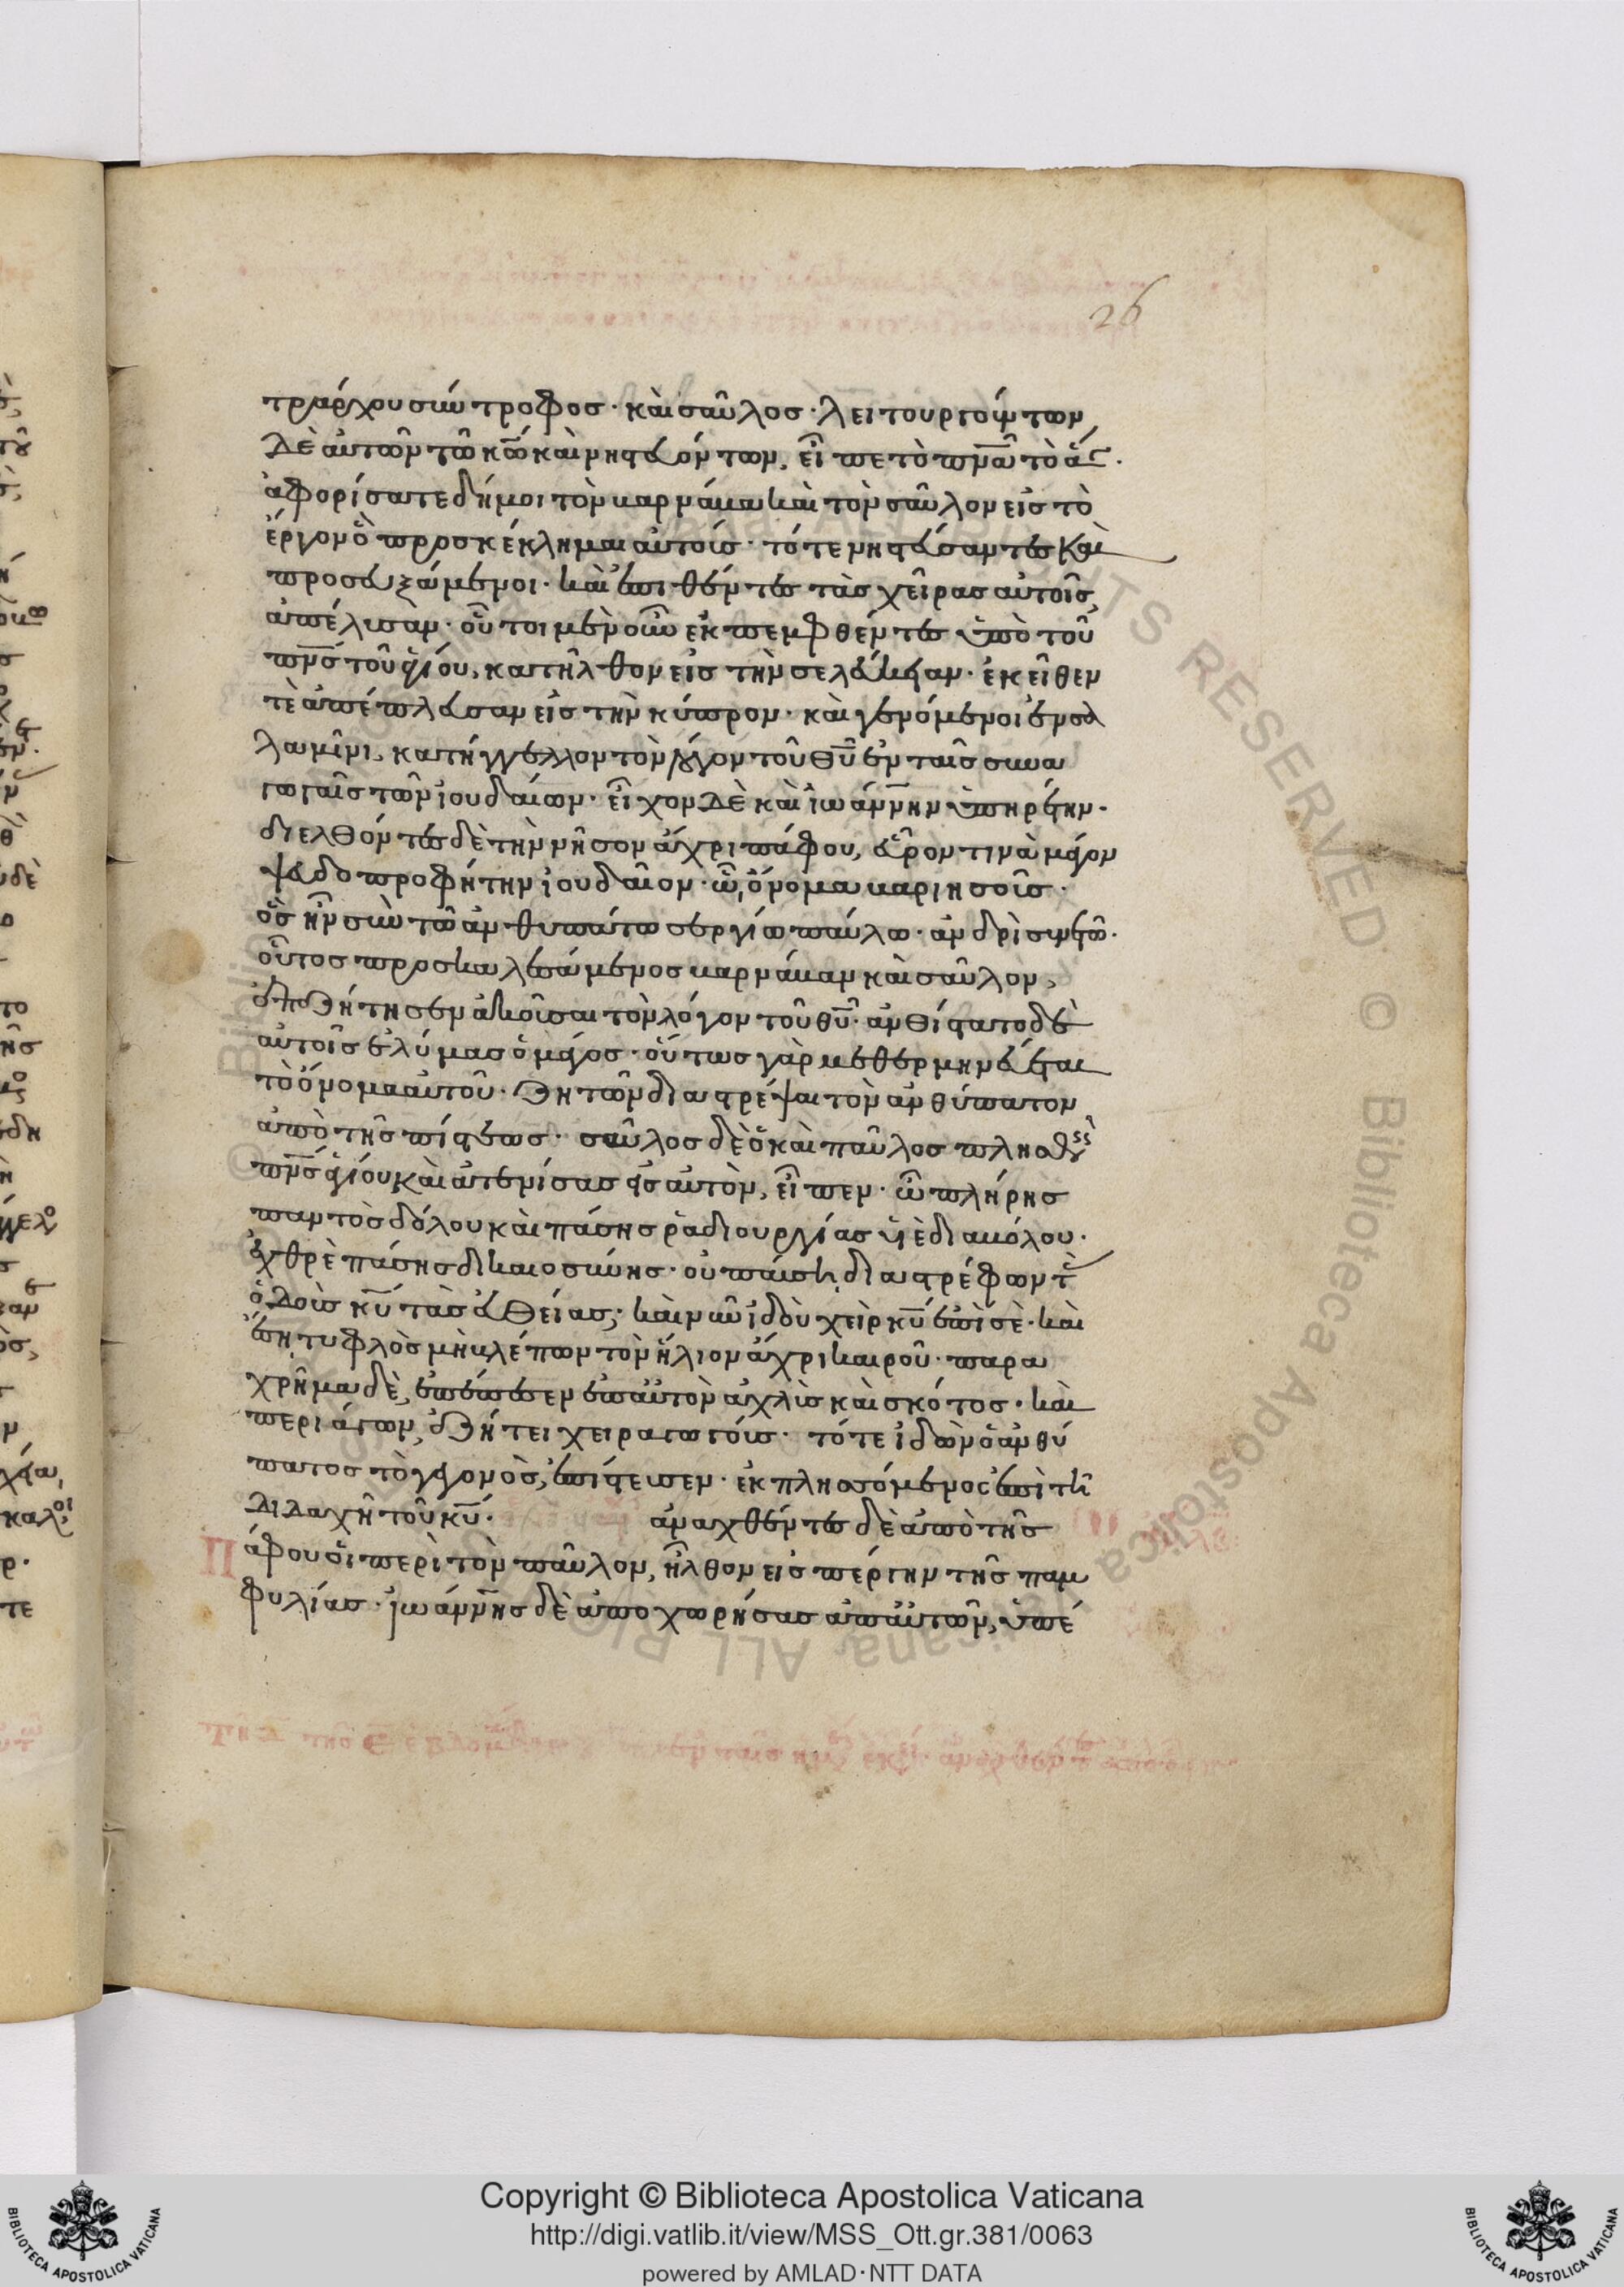 26
τράρχου σύντροφος· καὶ σαῦλος· λειτουργούντων
δὲ αὐτῶν τῶ κῶ καὶ νηστευόντων, εἶπε τὸ πνᾶ τὸ ἅγ·
ἀφορίσατε δή μοι τὸν βαρνάβα καὶ τὸν σαῦλον εἰς τὸ
ἔργον ὃ προσκέκλημαι αὐτούς· τότε νηστεύσαντες καὶ
προσευξάμενοι· καὶ ἐπιθέντες τὰς χεῖρας αὐτοῖς,
ἀπέλυσαν· οὗτοι μὲν οὖν ἐκπεμφθέντες ὑπὸ τοῦ
πνς τοῦ ἁγίου, κατῆλθον εἰς τὴν σελεύκειαν· ἐκεῖθεν
τὲ ἀπέπλευσαν εἰς τὴν κύπρον· καὶ γενόμενοι ἐν σα
λαμῖνι, κατήγγελλον τὸν λόγον τοῦ θυ ἐν ταῖς συνα
γωγαῖς τῶν ἰουδαίων· εἶχον δὲ καὶ ἰωάννην ὑπηρέτην·
διελθόντες δὲ τὴν νῆσον ἄχρι πάφου, εὗρον τινὰ μάγον
ψευδοπροφήτην ἰουδαῖον· ὧ ὄνομα βαριησοῦς·
ὃς ἦν σὺν τῶ ἀνθυπάτω σεργίω παύλω· ἀνδρὶ συνετῶ·
οὗτος προσκαλεσάμενος βαρνάβαν καὶ σαῦλον,
ἐπεζήτησεν ἀκοῦσαι τὸν λόγον τοῦ θυ· ἀνθίστατο δὲ
αὐτοῖς ἐλύμας ὁ μάγος· οὕτως γὰρ μεθερμηνεύεται
τὸ ὄνομα αὐτοῦ· ζητῶν διαστρέψαι τὸν ἀνθύπατον
ἀπὸ τῆς πίστεως· σαῦλος δὲ ὁ καὶ παῦλος πλησθεὶς
πνς ἁγίου καὶ ἀτενίσας εἰς αὐτὸν, εἶπεν· ὦ πλήρης
παντὸς δόλου καὶ πάσης ῥαδιουργίας υἱὲ διαβόλου·
ἐχθρὲ πάσης δικαιοσύνης· οὐ παύση διαστρέφων τὰς
ὁδοὺς κυ τὰς εὐθείας; καὶ νῦν ἰδοὺ χεὶρ κυ ἐπὶ σὲ· καὶ
ἔση τυφλὸς μὴ βλέπων τὸν ἥλιον ἄχρι καιροῦ· παρα
χρῆμα δὲ, ἐπέπεσεν ἐπ αὐτὸν ἀχλὺς καὶ σκότος· καὶ
περιάγων, ἐζήτει χειραγωγούς· τότε ἰδὼν ὁ ἀνθύ
πατος τὸ γεγονὸς, ἐπίστευσεν· ἐκπλησσόμενος ἐπὶ τῆ
διδαχῆ τοῦ κυ· ἀναχθέντες δὲ ἀπὸ τῆς
Πάφου οἱ περὶ τὸν παῦλον, ἦλθον εἰς πέργην τῆς παμ
φυλίας· ἰωάννης δὲ ἀποχωρήσας ἀπ αὐτῶν, ὑπέ
Copyright © Biblioteca Apostolica Vaticana
http://digi.vatlib.it/view/MSS_Ott.gr.381/0063
powered by AMLAD·NTT DATA